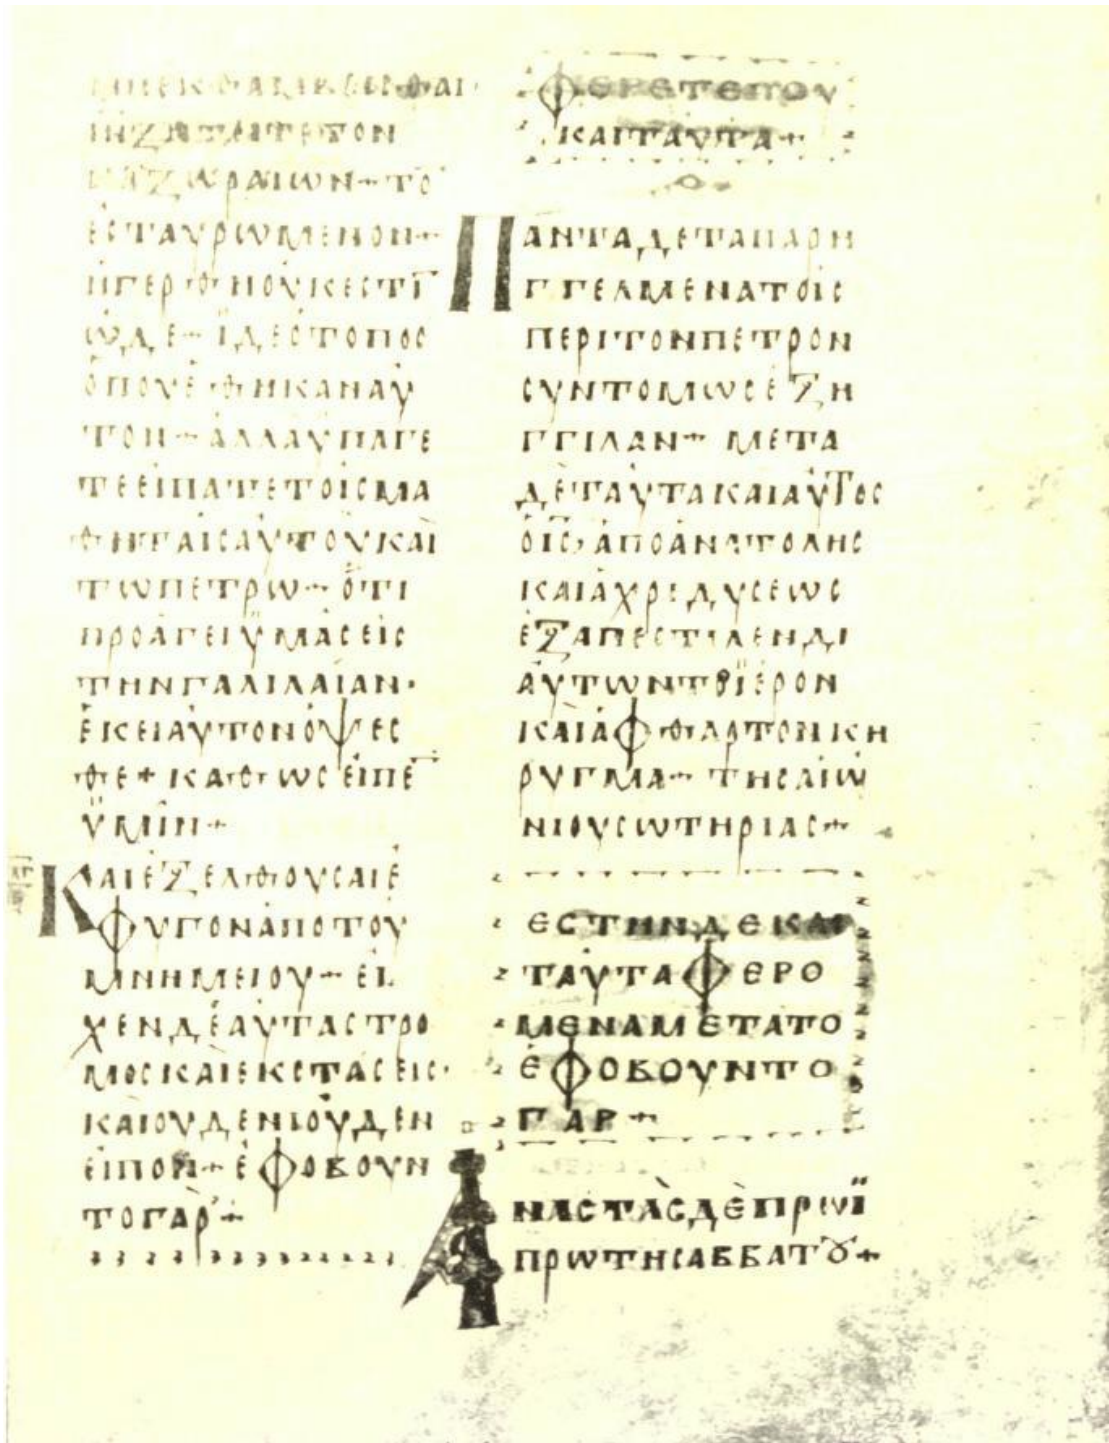 ΜΗΕΚΘΑΜΒΕΙΣΘΑΙ
ΙΗΖΗΤΕΙΤΕΤΟΝ
ΝΑΖΩΡΑΙΩΝ+ΤΟ
ΕϹΤΑΥΡΩΜΕΝΟΝ+
ΗΓΕΡΘΗΟΥΚΕϹΤΙ
ΩΔΕ+ΪΔΕΟΤΟΠΟϹ
ΟΠΟΥΕΘΗΚΑΝΑΥ
ΤΟΝ+ΑΛΛΑΥΠΑΓΕ
ΤΕΕΙΠΑΤΕΤΟΙϹΜΑ
ΘΗΤΑΙϹΑΥΤΟΥΚΑΙ
ΤΩΠΕΤΡΩ+ΟΤΙ
ΠΡΟΑΓΕΙΥΜΑϹΕΙϹ
ΤΗΝΓΑΛΙΛΑΙΑΝ·
ΕΚΕΙΑΥΤΟΝΟΨΕϹ
ΘΕ+ΚΑΘΩϹΕΙΠΕ
ΫΜΙΝ+
ΚΑΙΕΞΕΛΘΟΥϹΑΙΕ
ΦΥΓΟΝΑΠΟΤΟΥ
ΜΝΗΜΕΙΟΥ+ΕΙ
ΧΕΝΔΕΑΥΤΑϹΤΡΟ
ΜΟϹΚΑΙΕΚϹΤΑϹΕΙϹ·
ΚΑΙΟΥΔΕΝΙΟΥΔΕΝ
ΕΙΠΟΝ+ΕΦΟΒΟΥΝ
ΤΟΓΑΡ+
ΦΕΡΕΤΕΠΟΥ
ΚΑΙΤΑΥΤΑ+
ΠΑΝΤΑΔΕΤΑΠΑΡΗ
ΓΓΕΛΜΕΝΑΤΟΙϹ
ΠΕΡΙΤΟΝΠΕΤΡΟΝ
ϹΥΝΤΟΜΩϹΕΞΗ
ΓΓΙΛΑΝ+ΜΕΤΑ
ΔΕΤΑΥΤΑΚΑΙΑΥΤΟϹ
ΟΙϹ,ΑΠΟΑΝΑΤΟΛΗϹ
ΚΑΙΑΧΡΙΔΥϹΕΩϹ
ΕΞΑΠΕϹΤΙΛΕΝΔΙ
ΑΥΤΩΝΤΟΪΕΡΟΝ
ΚΑΙΑΦΘΑΡΤΟΝΚΗ
ΡΥΓΜΑ+ΤΗϹΑΙΩ
ΝΙΟΥϹΩΤΗΡΙΑϹ+
ΕϹΤΗΝΔΕΚΑΙ
ΤΑΥΤΑΦΕΡΟ
ΜΕΝΑΜΕΤΑΤΟ
ΕΦΟΒΟΥΝΤΟ
ΓΑΡ+
ΑΝΑϹΤΑϹΔΕΠΡΩΪ
ΠΡΩΤΗϹΑΒΒΑΤȢ+